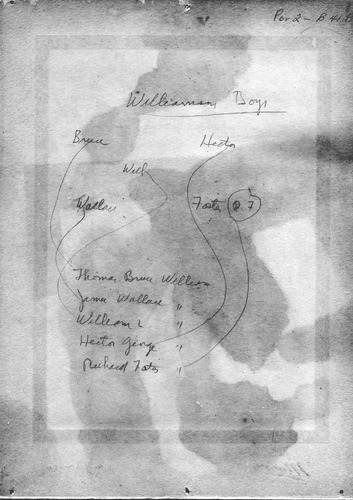 Por 2 - B 41
Williamson Boys
Bruce
Hector
Will
Wallace
Foster
Thomas Bruce William
James Wallace "
William L "
Hector George "
Richard Foster "